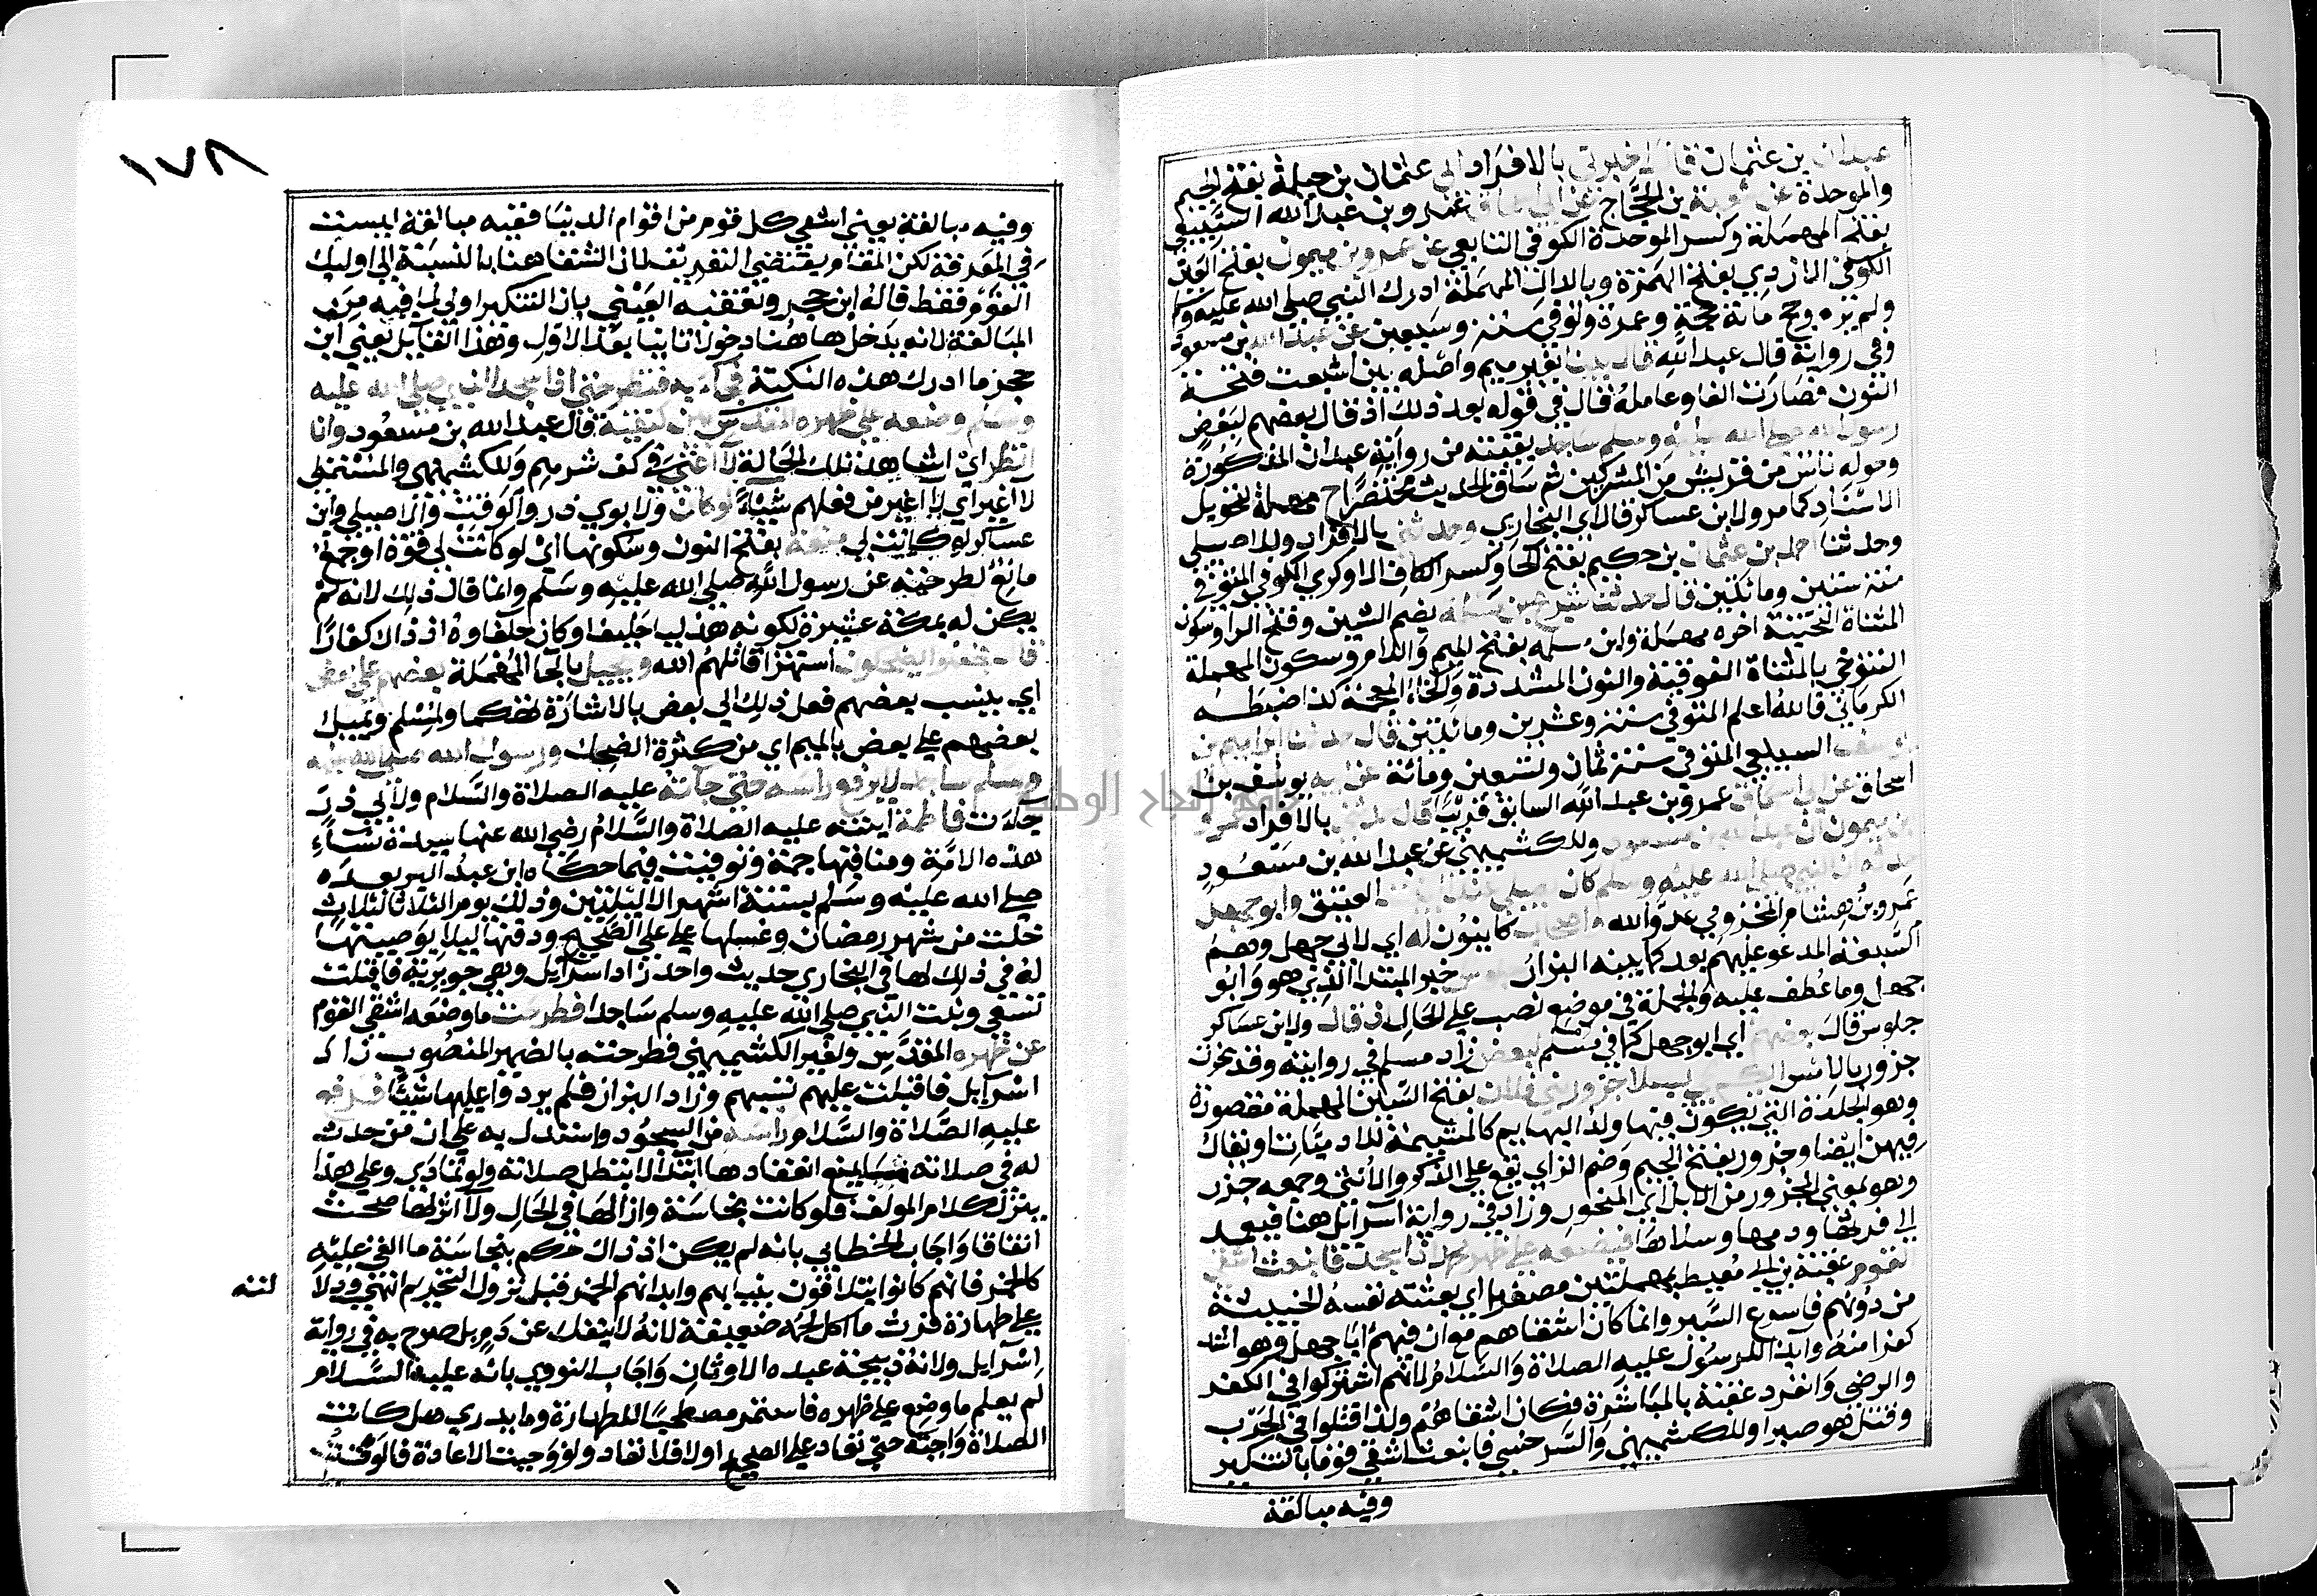 عبدان بن عثمان قال اخبرني بالافراد ابي عثمان بن جبلة بفتح الجيم
والموحدة عن شعبة بن الحجاج عن ابي اسحاق عمرو بن عبد الله السبيعي
بفتح المهملة وكسر الموحدة الكوفي التابعي عن عمرو بن ميمون بفتح العين
الكوفي الازدي بفتح الهمزة وبالدال المهملة ادرك النبي صلى الله عليه وسلم
ولم يره وحج مائة حجة وعمرة وتوفي سنة وسبعين عن عبد الله بن مسعود
وفي رواية قال عبد الله قال بينا بغير ميم واصله بين اشبعت فتحة
النون فصارت الفا وعامله قال في قوله بعد ذلك اذ قال بعضهم لبعض
رسول الله صلى الله عليه وسلم ساجد بقيته من رواية عبدان المذكورة
وحوله ناس من قريش من المشركين ثم ساق الحديث مختصرا ح مهملة لتحويل
الاسناد كما مر ولابن عساكر قال اي البخاري وحدثني بالافراد وللاصيلي
وحدثنا احمد بن عثمان بن حكيم بفتح الحا وكسر الكاف الاودي الكوفي المتوفي
سنة ستين ومائتين قال حدثنا شريح بن مسلمة بضم الشين وفتح الرا وسكون
المثناة التحتية اخره مهملة وابن مسلمه بفتح الميم واللام وسكون المهملة
التنوخي بالمثناة الفوقية والنون المشددة والخاء المعجمة كذا ضبطه
الكرماني فالله اعلم المتوفي سنة وعشرين ومائتين قال حدثنا ابراهيم بن
يوسف السبيعي المتوفي سنة ثمان وتسعين ومائة عن ابيه يوسف بن
اسحاق عن ابي اسحاق عمرو بن عبد الله السابق قريبا قال حدثني بالافراد عمرو
بن ميمون ان عبد الله بن مسعود وللكشميهني عن عبد الله بن مسعود
حدثه ان النبي صلى الله عليه وسلم كان يصلي عند البيت العتيق وابو جهل
عمرو بن هشام المخزومي عدو الله واصحاب كاينون له اي لابي جهل وهم
السبعة المدعو عليهم بعد كما بينه البزار جلوس خبر المبتدا الذي هو وابو
جهل وما عطف عليه والجملة في موضع نصب على الحال اذ قال ولابن عساكر
جلوس قال بعضهم اي ابو جهل كما في مسلم لبعض زاد مسلم في روايته وقد نحرت
جزور بالامس ايكم يجي بسلا جزور بني فلان بفتح السين المهملة مقصورة
وهو الجلدة التي يكون فيها ولد البهايم كالمشيمة للادميات او يقال
فيهن ايضا وجزور بفتح الجيم وضم الزاي يقع على الذكر والانثى وجمعه جزر
وهو بمعنى المجزور من الابل اي المنحور وزاد في رواية اسرائيل هنا فيعمد
الى فرثها ودمها وسلاها فيضعه على ظهر محمد اذا سجد فانبعث اشقى
القوم عقبة بن ابي معيط بمهملتين مصغرا اي بعثته نفسه الخبيثة
من دونهم فاسرع السير وانما كان اشقاهم مع ان فيهم ابا جهل وهو اشد
كفرا منه وايذا للرسول عليه الصلاة والسلام لانهم اشتركوا في الكفر
والرضى وانفرد عقبة بالمباشرة فكان اشقاهم ولذا قتلوا في الحرب
وقتل هو صبرا وللكشميهني والسرخسي فانبعث اشقى قوم بالتنكير
وفيه مبالغة
١٧٨
وفيه مبالغة يعني اشقى كل قوم من اقوام الدنيا ففيه مبالغة ليست
في المعرفة لكن المقام يقتضي التعريف لان الشقا هنا بالنسبة الى اوليك
القوم فقط قاله ابن حجر وتعقبه العيني بان التنكير اولى لما فيه من
المبالغة لانه يدخل هاهنا دخولا ثانيا بعد الاول وهذا القايل يعني ابن
حجر ما ادرك هذه النكتة فجاء به فنظر حتى اذا سجد النبي صلى الله عليه
وسلم وضعه على ظهره المقدس بين كتفيه قال عبد الله بن مسعود وانا
انظر اي اشاهد تلك الحالة لا اغني في كف شرهم وللكشميهني والمستملي
لا اغير اي لا اغير من فعلهم شيئا لو كان ولابوي ذر والوقت والاصيلي وابن
عساكر لو كانت لي منعة بفتح النون وسكونها اي لو كانت لي قوة او جمع
مانع لطرحته عن رسول الله صلى الله عليه وسلم وانما قال ذلك لانه لم
يكن له بمكة عشيرة لكونه هذليا حليفا وكان حلفاوه اذ ذاك كفارا
قال فجعلوا يضحكون استهزا قاتلهم الله ويحيل بالحا المهملة بعضهم على بعض
اي ينسب بعضهم فعل ذلك الى بعض بالاشارة تهكما ولمسلم ويميل
بعضهم على بعض بالميم اي من كثرة الضحك ورسول الله صلى الله عليه
وسلم ساجد لا يرفع راسه حتى جاته عليه الصلاة والسلام ولابي ذر
جاءت فاطمة ابنته عليه الصلاة والسلام رضي الله عنها سيدة نساء
هذه الامة ومناقبها جمة وتوفيت فيما حكاه ابن عبد البر بعده
صلى الله عليه وسلم بستة اشهر الا ليلتين وذلك يوم الثلاثا لثلاث
خلت من شهر رمضان وغسلها علي على الصحيح ودفنها ليلا بوصيتها
له في ذلك لها في البخاري حديث واحد زاد اسرائيل وهي جويرية فاقبلت
تسعى وثبت النبي صلى الله عليه وسلم ساجدا فطرحت ما وضعه اشقى القوم
عن ظهره المقدس ولغير الكشميهني فطرحته بالضمير المنصوب زاد
اسرايل فاقبلت عليهم تسبهم وزاد البزار فلم يردوا عليها شيئا فرفع
عليه الصلاة والسلام راسه من السجود واستدل به على ان من حدث
له في صلاته ما يمنع انعقادها ابتدا لا تبطل صلاته ولو تمادي وعلى هذا
ينزل كلام المولف فلو كانت نجاسة وازالها في الحال ولا اثر لها صحت
اتفاقا واجاب الخطابي بانه لم يكن اذ ذاك حكم بنجاسة ما القي عليه
كالخمر فانهم كانوا يتلاقون بثيابهم وابدانهم الخمر قبل نزول التحريم انتهى ودلا
لته
على طهارة فرث ما اكل لحمه ضعيفة لانه لا ينفك عن دم بل صرح به في رواية
اسرايل ولانه ذبيحة عبده الاوثان واجاب النووي بانه عليه السلام
لم يعلم ما وضع على ظهره فاستمر مصطحبا للطهارة وما يدري هل كانت
الصلاة واجبة حتى تعاد على الصحيح او لا فلا تعاد ولو وجبت الاعادة فالوقت